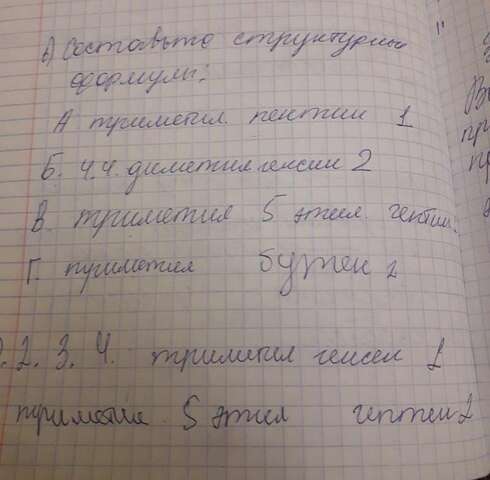 А) Составьте структурные
формулы:
А триметил. пентин 1
Б. 4.4. диметилгексин 2
В. триметил 5 этил гептин
Г. триметил бутен 2
2. 3. 4. триметил гексен 1
триметил 5 этил гептен 2